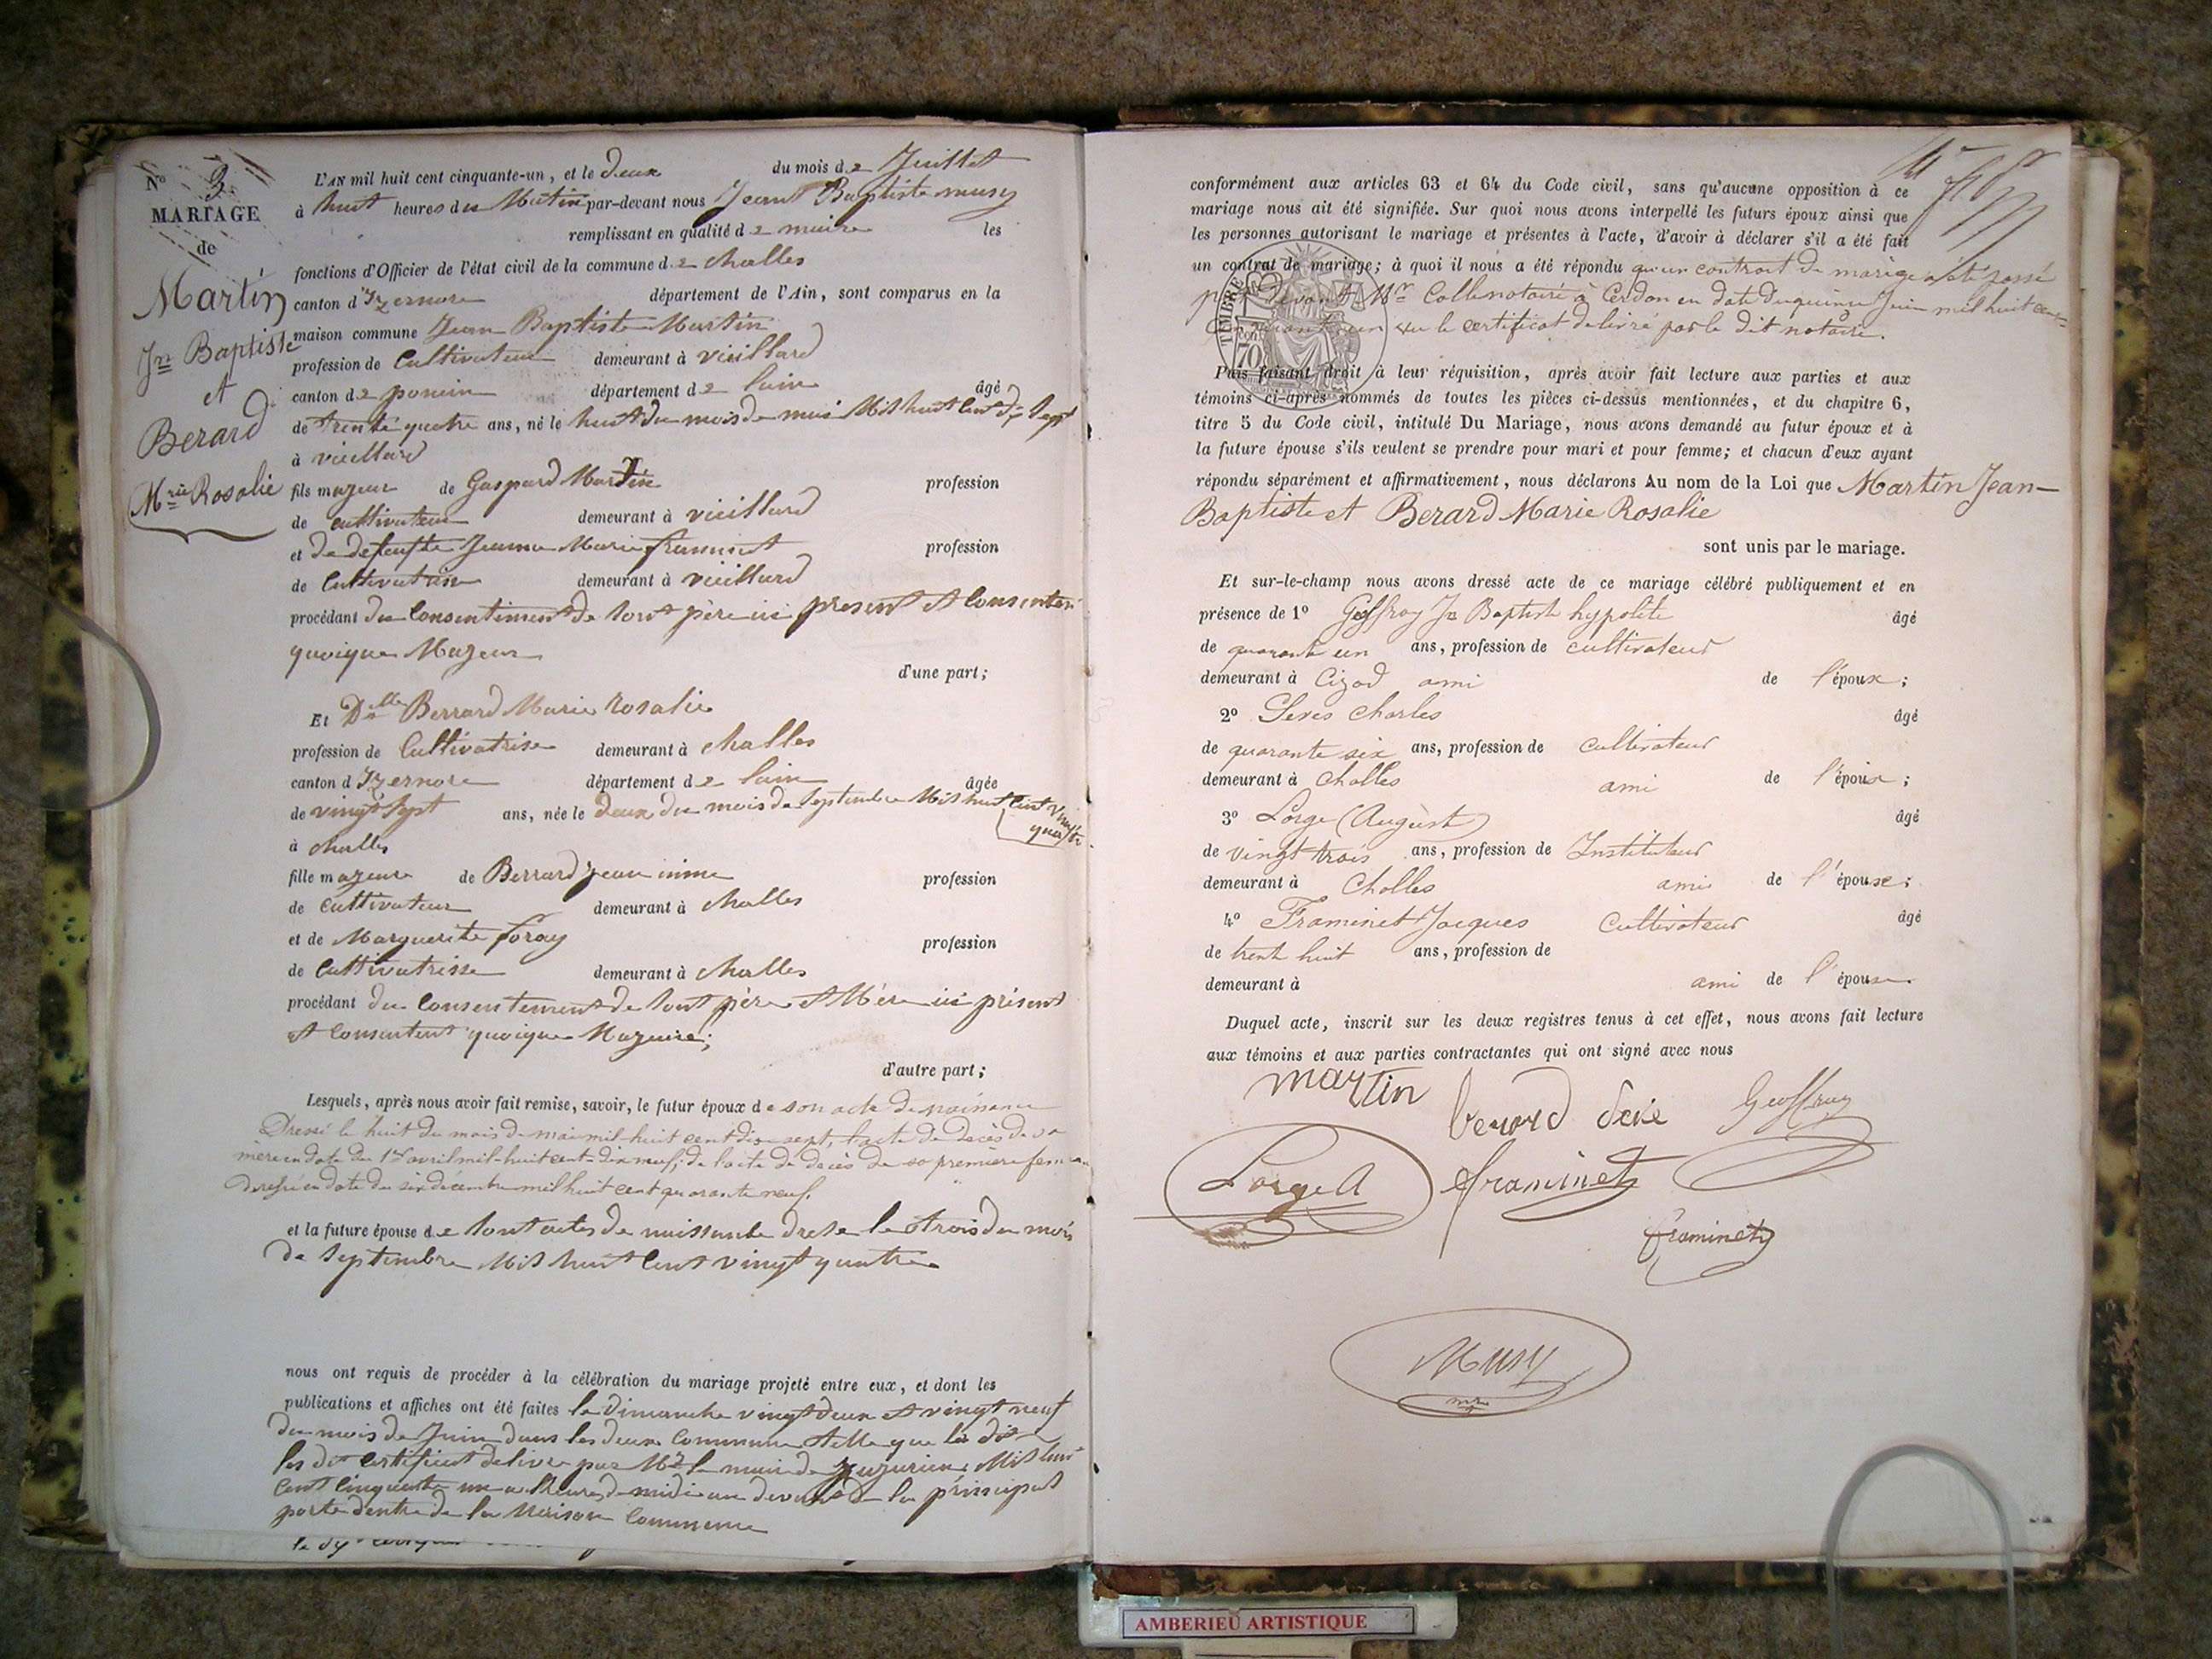 N.o 3.
MARIAGE
de
Martin
Jn Baptiste
et
Berard
Mrie Rosalie
L'AN mil huit cent cinquante-un, et le deux du mois de Juillet
à huit heures du Matin par-devant nous Jean Baptiste musy
remplissant en qualité de maire les
fonctions d'Officier de l'état civil de la commune de challes
canton d'Izernore département de l'Ain, sont comparus en la
maison commune Jean Baptiste Martin
profession de Cultivateur demeurant à vieillard
canton de poncin département de lain âgé
de trente quatre ans, né le huit du mois de mai Mil huit Cent dix Sept
à vieillard
fils majeur de Gaspard Martin profession
de cultivateur demeurant à vieillard
et de defeufte Jeanne Marie framinet profession
de Cultivatrise demeurant à vieillard
procédant du Consentiment de sont père ici present et Consentent
quoique Majeur
d'une part;
Et Dlle Berrard Marie rosalie
profession de Cultivatrise demeurant à challes
canton d'Izernore département de lain âgée
de vingt Sept ans, née le deux du mois de Septembre Mil huit Cent vingt
quatre
à challes
fille majeure de Berrard jean profession
de cultivateur demeurant à challes
et de Marguerite foray profession
de Cultivatrisse demeurant à challes
procédant du Consentement de sont père et Mère ici présent
et Consentent quoique Majeure;
d'autre part;
Lesquels, après nous avoir fait remise, savoir, le futur époux de son acte de naisance
Dressé le huit du mois de mai mil huit cent dix sept, l'acte de decès de sa
mère en date du 1er avril mil-huit cent-dix neuf; de l'acte de décès de sa première femme
en date du six décembre mil huit cent quarante neuf.
et la future épouse de sont actes de naissante drese le trois du mois
de Septembre Mil huit Cent vingt quatre
nous ont requis de procéder à la célébration du mariage projeté entre eux, et dont les
publications et affiches ont été faites le dimanche vingt deux et vingt neuf
du mois de Juin dans les deux Commune telle que le dit
les dit certificat delivre par Mr le maire de jujurieux Mil huit
Cent Cinquante un a lheure de midi au devant de la principal
porte dentre de la Maison Commune
conformément aux articles 63 et 64 du Code civil, sans qu'aucune opposition à ce
mariage nous ait été signifiée. Sur quoi nous avons interpellé les futurs époux ainsi que
les personnes autorisant le mariage et présentes à l'acte, d'avoir à déclarer s'il a été fait
un contrat de mariage; à quoi il nous a été répondu qu'un contrat de mariage a été passé
par devant Mr Colle notaire à Cerdon en date du quinze Juin mil huit cent
cinquante un vu le certificat delivré par le dit notaire.
TIMBRE
70
Puis faisant droit à leur réquisition, après avoir fait lecture aux parties et aux
témoins ci-après nommés de toutes les pièces ci-dessus mentionnées, et du chapitre 6,
titre 5 du Code civil, intitulé Du Mariage, nous avons demandé au futur époux et à
la future épouse s'ils veulent se prendre pour mari et pour femme; et chacun d'eux ayant
répondu séparément et affirmativement, nous déclarons Au nom de la Loi que Martin Jean-
Baptiste et Berard Marie Rosalie
sont unis par le mariage.
Et sur-le-champ nous avons dressé acte de ce mariage célébré publiquement et en
présence de 1o Geoffray Jn Baptiste hypolite âgé
de quarante un ans, profession de cultivateur
demeurant à Cizod ami de l'époux;
2o Seves Charles âgé
de quarante six ans, profession de cultivateur
demeurant à Challes ami de l'époux;
3o Lorge (August) âgé
de vingt trois ans, profession de Instituteur
demeurant à Challes ami de l'épouse;
4o Framinet Jacques Cultivateur âgé
de trente huit ans, profession de
demeurant à ami de l'épouse.
Duquel acte, inscrit sur les deux registres tenus à cet effet, nous avons fait lecture
aux témoins et aux parties contractantes qui ont signé avec nous
martin berard Geoffray
Lorge A framinet
framinet
Musy
AMBERIEU ARTISTIQUE